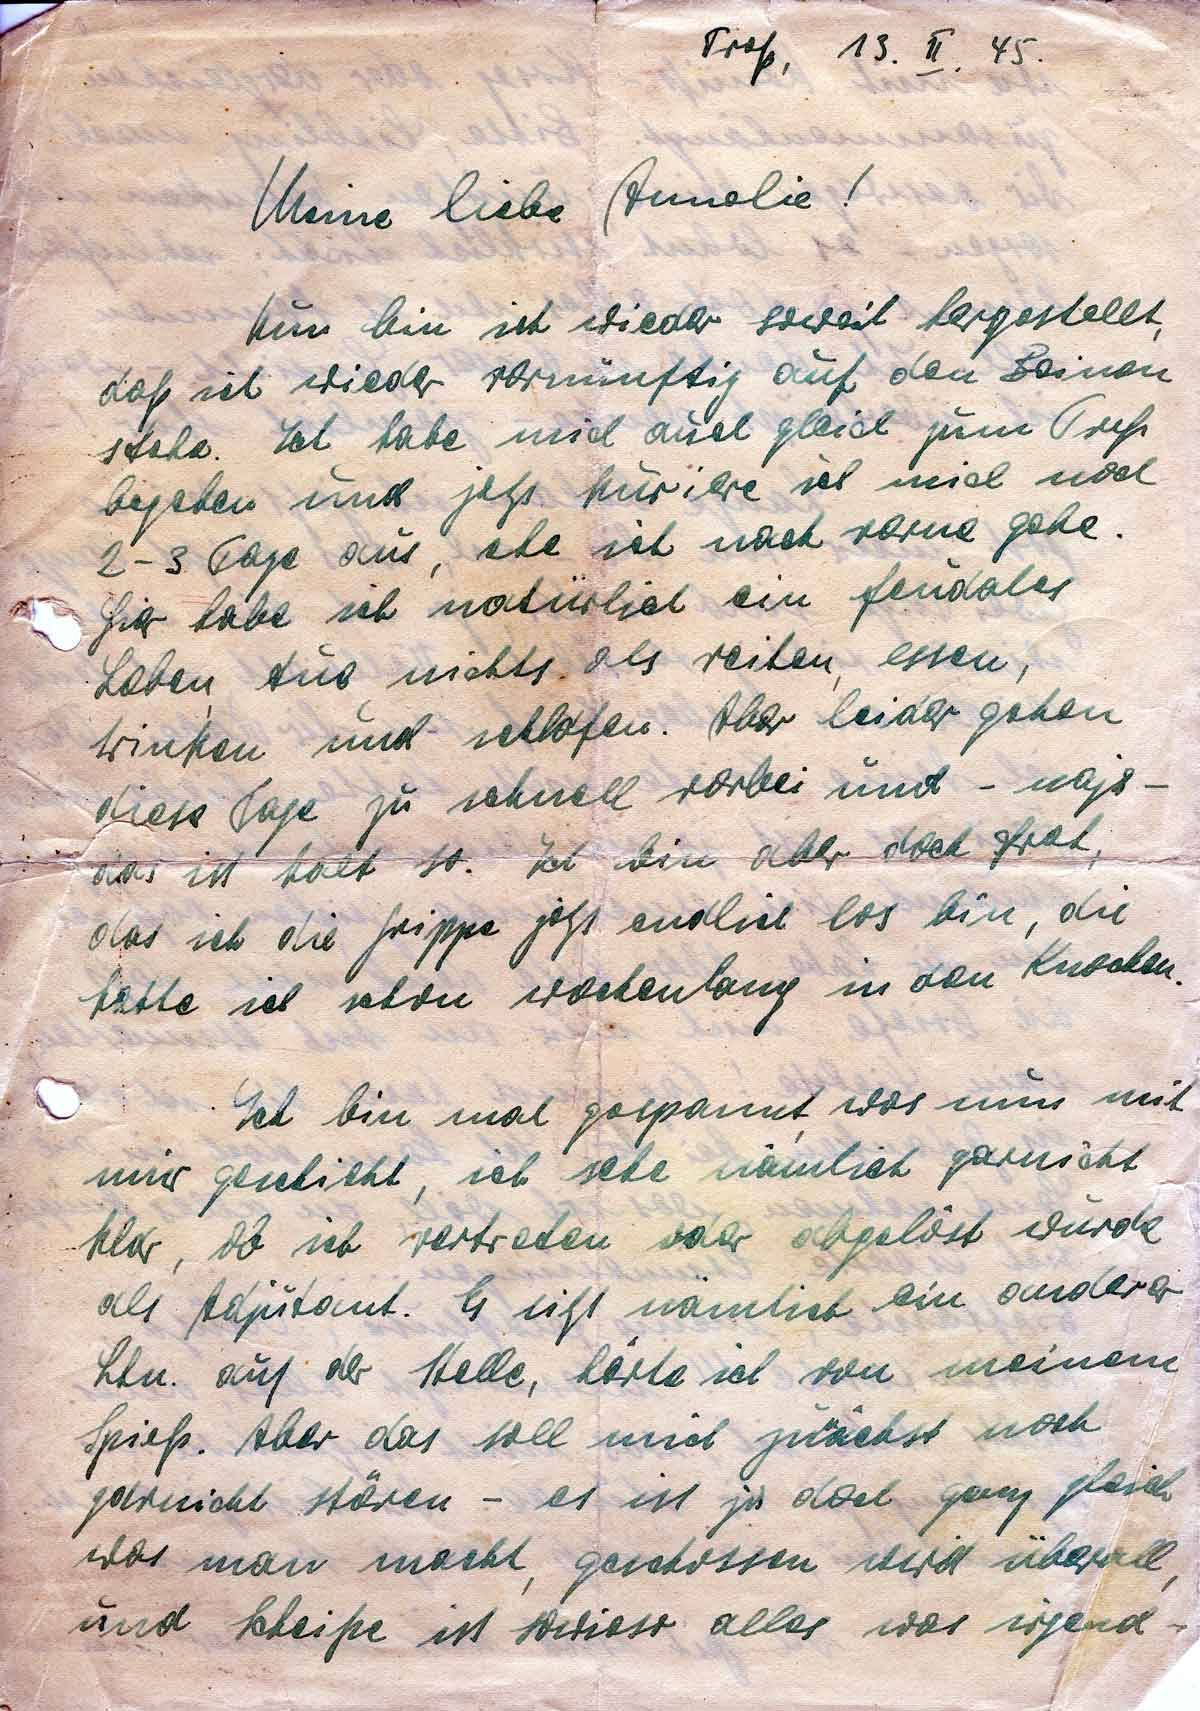 Troß, 13. II. 45.
Meine liebe Annelie!
Nun bin ich wieder soweit hergestellt,
daß ich wieder vernünftig auf den Beinen
stehe. Ich habe mich auch gleich zum Troß
begeben und jetzt kuriere ich mich noch
2-3 Tage aus, ehe ich nach vorne gehe.
Hier habe ich natürlich ein feudales
Leben, tue nichts als reiten, essen,
trinken und schlafen. Aber leider gehen
diese Tage zu schnell vorbei und - naja -
das ist halt so. Ich bin aber doch froh,
das ich die Grippe jetzt endlich los bin, die
hatte ich schon wochenlang in den Knochen.
Ich bin mal gespannt, was nun mit
mir geschieht, ich sehe nämlich garnicht
klar, ob ich vertreten oder abgelöst wurde
als Adjutant. Es sitzt nämlich ein anderer
Ltn. auf der Stelle, hörte ich von meinem
Spieß. Aber das soll mich zunächst noch
garnicht stören - es ist ja doch ganz gleich
was man macht, geschossen wird überall,
und Scheiße ist sowieso alles was irgend-